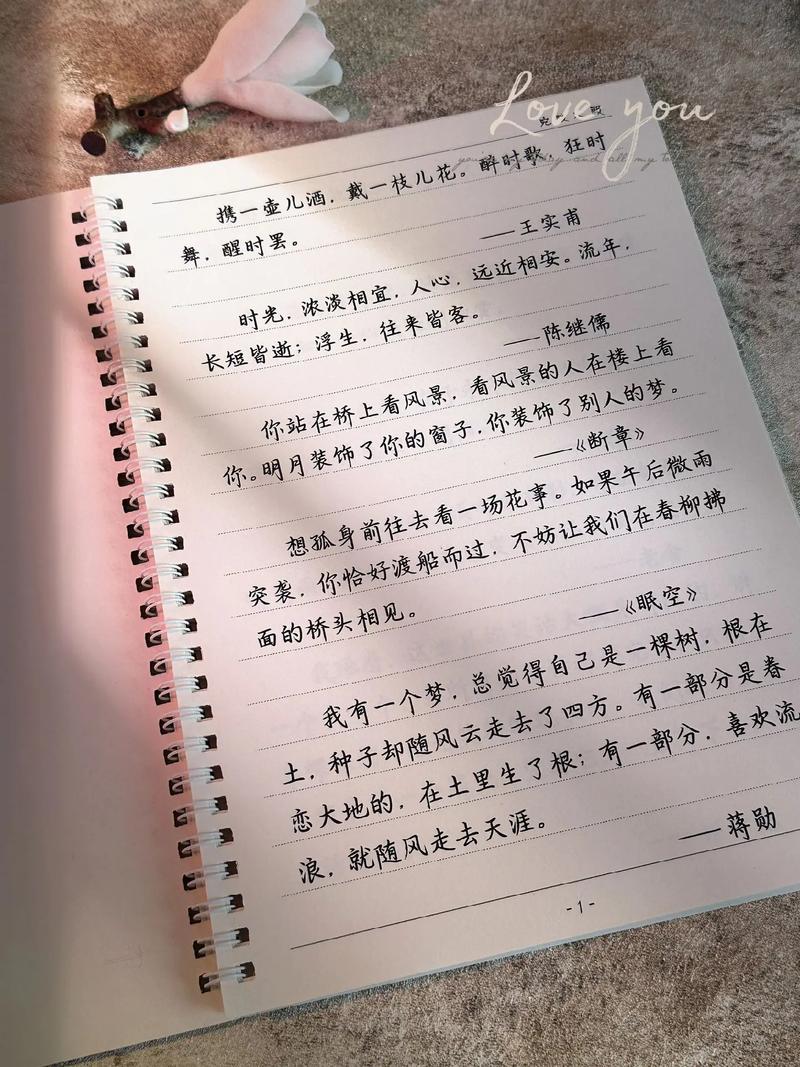 Love you
携一壶儿酒，戴一枝儿花。醉时歌，狂时
舞，醒时罢。
——王实甫
时光，浓淡相宜，人心，远近相安。流年，
长短皆逝；浮生，往来皆客。
——陈继儒
你站在桥上看风景，看风景的人在楼上看
你。明月装饰了你的窗子，你装饰了别人的梦。
——《断章》
想孤身前往去看一场花事。如果午后微雨
突袭，你恰好渡船而过，不妨让我们在春柳拂
面的桥头相见。
——《眠空》
我有一个梦，总觉得自己是一棵树，根在
土，种子却随风云走去了四方。有一部分是眷
恋大地的，在土里生了根；有一部分，喜欢流
浪，就随风走去天涯。
——蒋勋
-1-